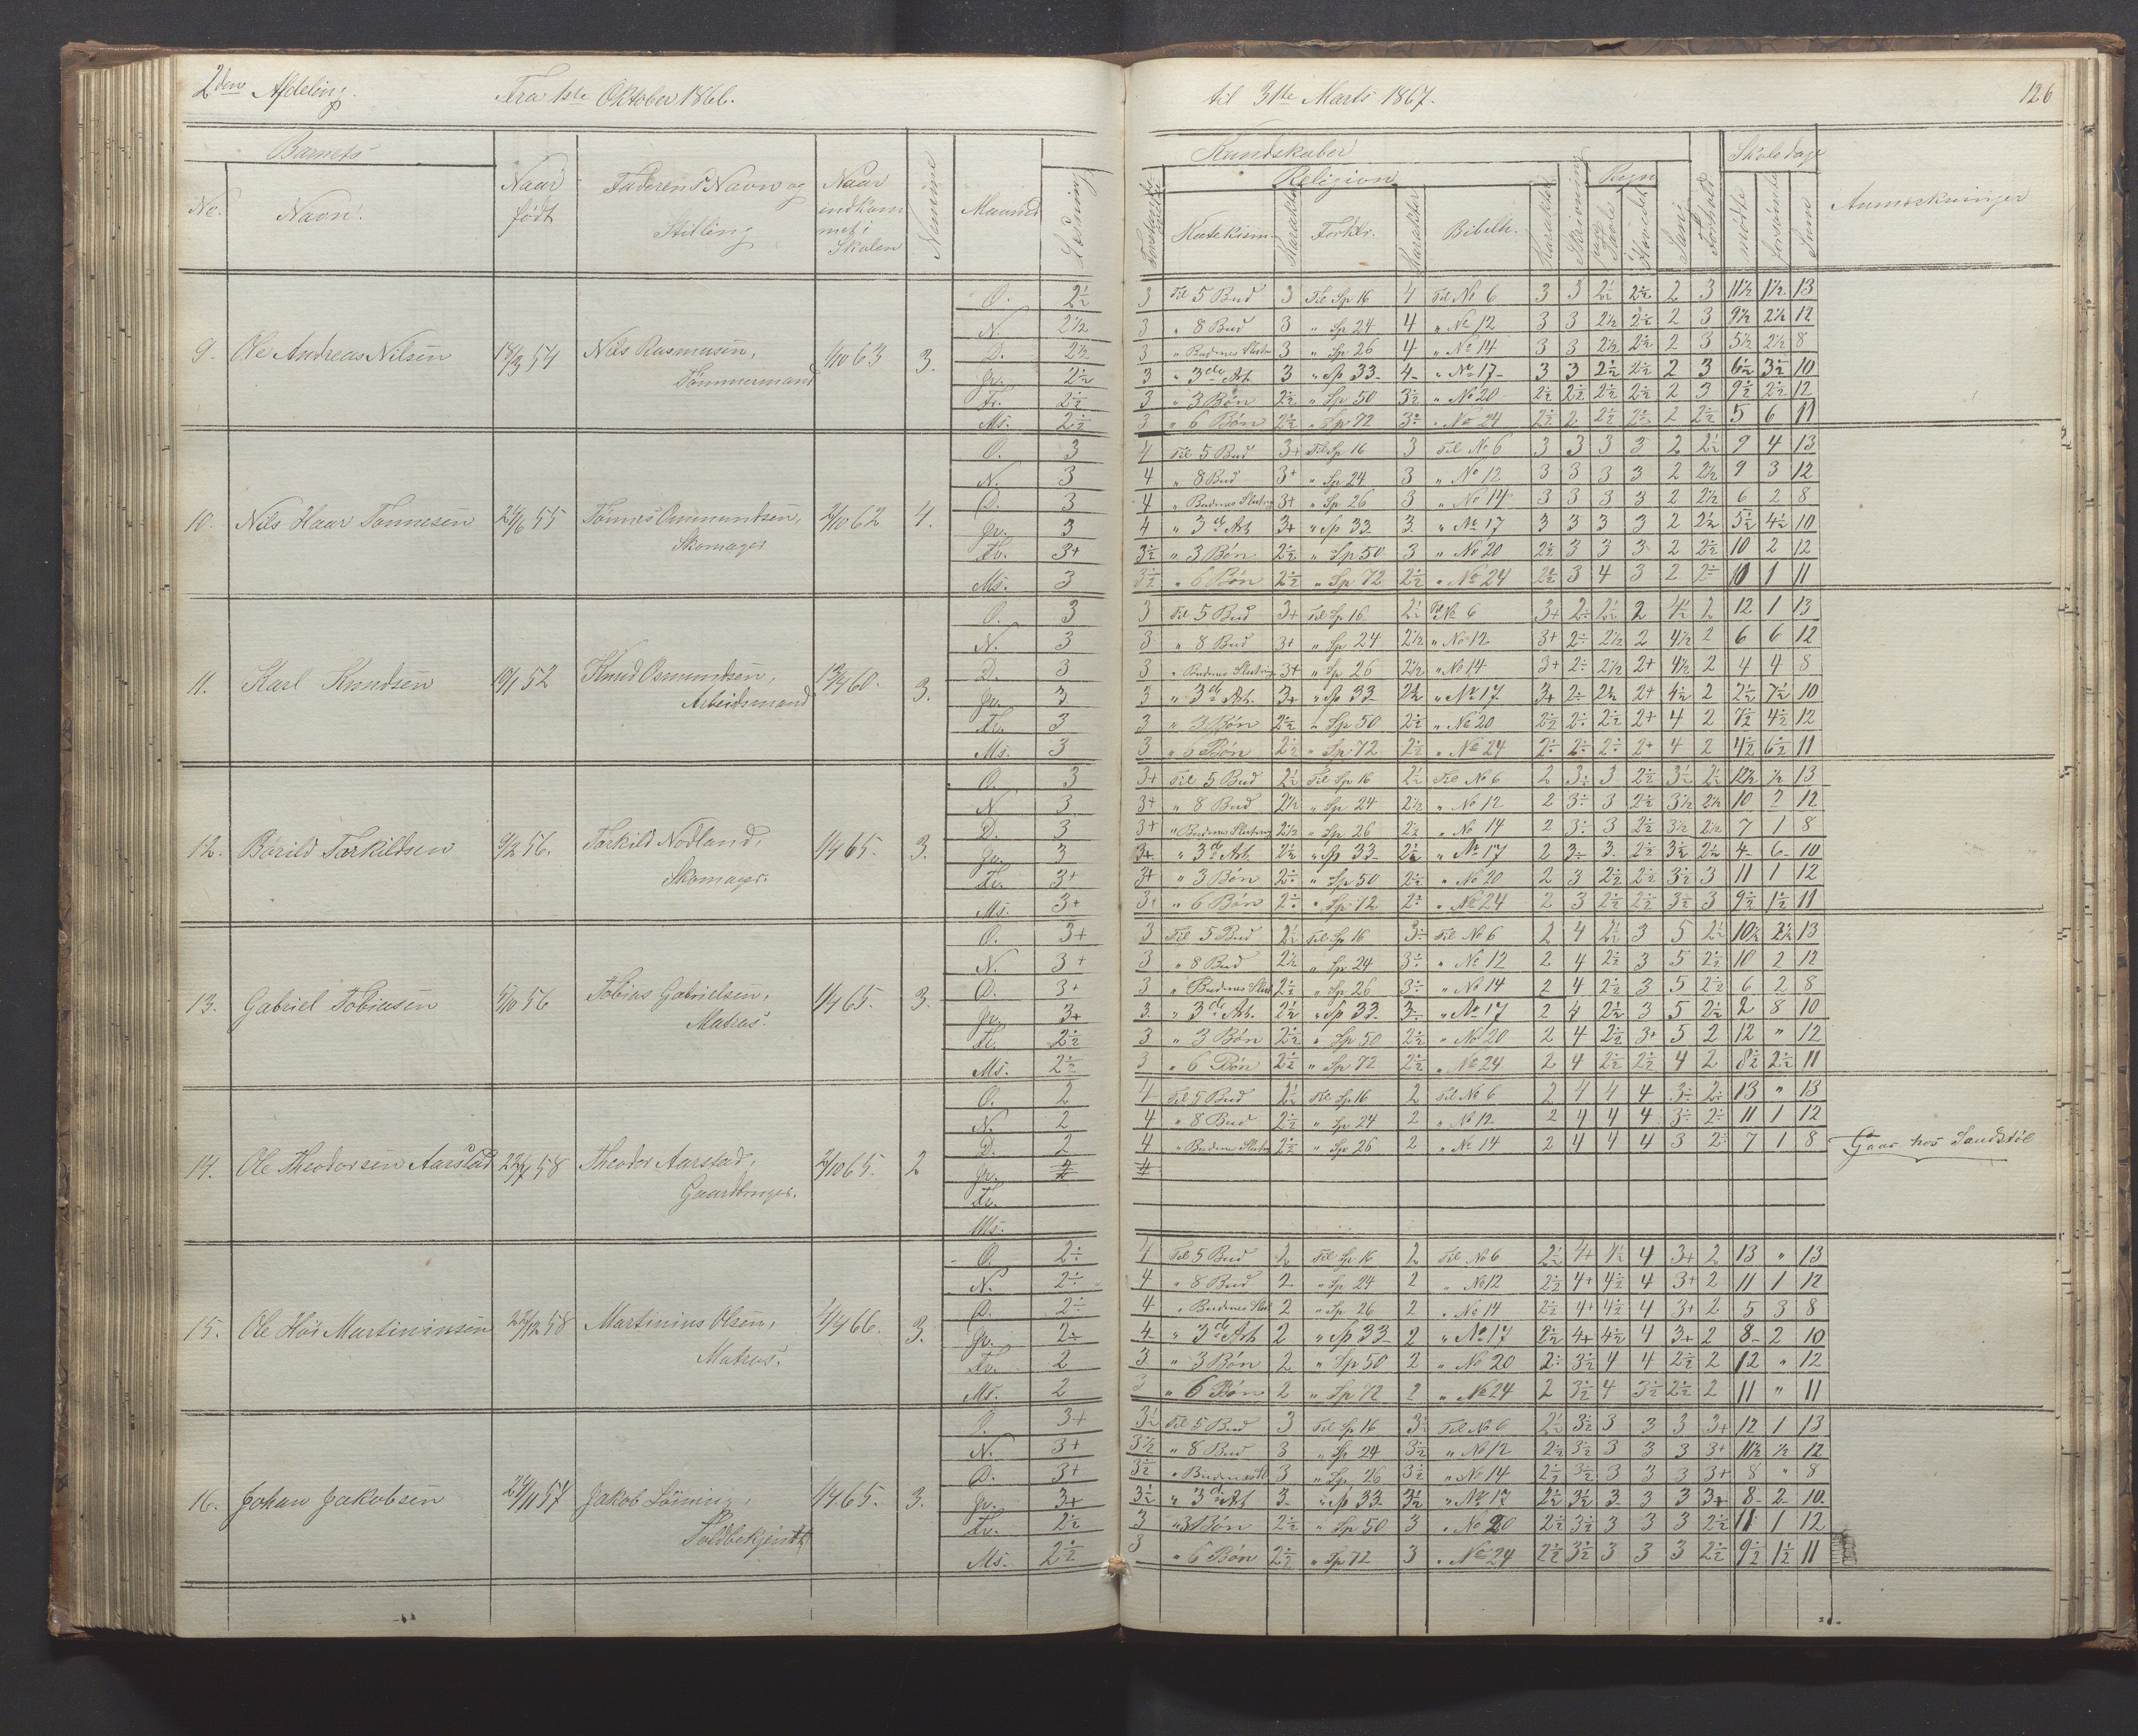 2den Afdeling. Fra 1ste Oktober 1866. til 31te Marts 1867. 126
Barnets Kundskaber Skoledage
No. Navn. Naar født Faderens Navn og Stilling Naar indkommet i Skolen Nemme Maaned Læsning Religion Katekism. Karakter Forklr. Karakter Bibelh. Karakter Skrivning Regn Tavle Hovedet Sang Forhold mødte forsømte Sum Anmærkninger
9. Ole Andreas Nilsen 54 Nils Rasmusen, Tømmermand 1/10 63 3.
O. 2½ 3 Til 5 Bud 3 Til Sp 16 4 Til No 6 3 3 2½ 2½ 2 3 11½ 1½ 13
N. 2½ 3 " 8 Bud 3 " Sp 24 4 " No 12 3 3 2½ 2½ 2 3 9½ 2½ 12
D. 2½ 3 " Budenes Slutn 3 " Sp 26 4 " No 14 3 3 2½ 2½ 2 3 5½ 2½ 8
Ja. 2½ 3 " 3de Art. 3 " Sp 33 4 " No 17 3 3 2½ 2½ 2 3 6½ 3½ 10
Fe. 2½ 3 " 3 Bøn 2½ " Sp 50 3½ " No 20 2½ 2½ 2½ 2½ 2 3 9½ 2½ 12
Ms. 2½ 3 " 6 Bøn 2½ " Sp 72 3÷ " No 24 2½ 2 2½ 2½ 2 2½ 5 6 11
10. Nils Haar Tønnesen 55 Tønnes Ommundsen, Skomager 2/10 62 4.
O. 3 4 Til 5 Bud 3+ Til Sp 16 3 Til No 6 3 3 3 3 2 2½ 9 4 13
N. 3 4 " 8 Bud 3+ " Sp 24 3 " No 12 3 3 3 3 2 2½ 9 3 12
D. 3 4 " Budenes Slutning 3+ " Sp 26 3 " No 14 3 3 3 3 2 2½ 6 2 8
Ja. 3 4 " 3de Art 3+ " Sp 33 3 " No 17 3 3 3 3 2 2½ 5½ 4½ 10
Fe. 3+ 3½ " 3 Bøn 2½ " Sp 50 3 " No 20 2½ 3 3 3 2 2½ 10 2 12
Ms. 3 3½ " 6 Bøn 2½ " Sp 72 2½ " No 24 2½ 3 4 3 2 2÷ 10 1 11
11. Karl Knudsen 10/1 52 Knud Osmundsen, Arbeidsmand 60. 3.
O. 3 3 Til 5 Bud 3+ Til Sp 16 2½ Til No 6 3+ 2÷ 2½ 2 4½ 2 12 1 13
N. 3 3 " 8 Bud 3+ " Sp 24 2½ " No 12 3+ 2÷ 2½ 2 4½ 2 6 6 12
D. 3 3 " Budenes Slutning 3+ " Sp 26 2½ " No 14 3+ 2÷ 2½ 2+ 4½ 2 4 4 8
Ja. 3 3 " 3de Art. 3+ " Sp 33 2½ " No 17 3+ 2÷ 2½ 2+ 4½ 2 2½ 7½ 10
Fe. 3 3 " 3 Bøn 2½ " Sp 50 2½ " No 20 2½ 2÷ 2½ 2+ 4 2 7½ 4½ 12
Ms. 3 3 " 6 Bøn 2½ " Sp 72 2½ " No 24 2÷ 2÷ 2÷ 2+ 4 2 4½ 6½ 11
12. Børild Torkildsen 9/2 56. Torkild Nodland, Skomager. 1/4 65. 3.
O. 3 3+ Til 5 Bud 2½ Til Sp 16 2½ Til No 6 2 3÷ 3 2½ 3½ 2½ 12½ ½ 13
N 3 3+ " 8 Bud 2½ " Sp 24 2½ " No 12 2 3÷ 3 2½ 3½ 2½ 10 2 12
D. 3 3+ " Budenes Slutning 2½ " Sp 26 2½ " No 14 2 3÷ 3 2½ 3½ 2½ 7 1 8
Ja. 3 3+ " 3de Art. 2½ " Sp 33 2½ " No 17 2 3÷ 3 2½ 3½ 2½ 4 6 10
Fe. 3+ 3+ " 3 Bøn 2÷ " Sp 50 2½ " No 20 2 3 2½ 2½ 3½ 3 11 1 12
Ms. 3+ 3+ " 6 Bøn 2÷ " Sp 72 2÷ " No 24 2 3 2½ 2½ 3½ 3 9½ 1½ 11
13. Gabriel Tobiasen 5/10 56 Tobias Gabrielsen, Matros. 1/4 65. 3.
O. 3+ 3 Til 5 Bud 2½ Til Sp 16 3÷ Til No 6 2 4 2½ 3 5 2½ 10½ 2½ 13
N. 3+ 3 " 8 Bud 2½ " Sp 24 3÷ " No 12 2 4 2½ 3 5 2½ 10 2 12
D. 3+ 3 " Budenes Slut 2½ " Sp 26 3÷ " No 14 2 4 2½ 3 5 2½ 6 2 8
Ja. 3+ 3 " 3de Art. 2½ " Sp 33 3÷ " No 17 2 4 2½ 3 5 2½ 2 8 10
Fe. 2½ 3 " 3 Bøn 2½ " Sp 50 2½ " No 20 2 4 2½ 3+ 5 2 12 " 12
Ms. 2½ 3 " 6 Bøn 2½ " Sp 72 2½ " No 24 2 4 2½ 2½ 4 2 8½ 2½ 11
14. Ole Theodorsen Aarstad 58 Theodor Aarstad, Gaardbruger. 2/10 65. 2
O. 2 4 Til 5 Bud 2½ Til Sp 16 2 Til No 6 2 4 4 4 3÷ 2÷ 13 " 13
N. 2 4 " 8 Bud 2½ " Sp 24 2 " No 12 2 4 4 4 3÷ 2÷ 11 1 12
D. 2 4 " Budenes Slutn 2½ " Sp 26 2 " No 14 2 4 4 4 3 2÷ 7 1 8 Gaar hos Sandstøl
Ja. 2 4
Fe.
Ms.
15. Ole Høi Martininsen 58 Martinius Olsen, Matros. 66. 3.
O. 2÷ 4 Til 5 Bud 2 Til Sp 16 2 Til No 6 2½ 4+ 4½ 4 3+ 2 13 " 13
N. 2÷ 4 " 8 Bud 2 " Sp 24 2 " No 12 2½ 4+ 4½ 4 3+ 2 11 1 12
D. 2÷ 4 " Budenes Slut 2 " Sp 26 2 " No 14 2½ 4+ 4½ 4 3+ 2 5 3 8
Ja. 2÷ 4 " 3de Art 2 " Sp 33 2 " No 17 2½ 4+ 4½ 4 3+ 2 8 2 10
Fe. 2 3 " 3 Bøn 2 " Sp 50 2 " No 20 2÷ 3½ 4 4 2½ 2 12 " 12
Ms. 2 3 " 6 Bøn 2 " Sp 72 2 " No 24 2 3½ 4 3½ 2½ 2 11 " 11
16. Johan Jakobsen 57 Jakob Lönning, Toldbetjent 1/4 65. 3.
O. 3+ 3½ Til 5 Bud 3 Til Sp 16 3½ Til No 6 2½ 3½ 3 3 3 3+ 12 1 13
N. 3+ 3½ " 8 Bud 3 " Sp 24 3½ " No 12 2½ 3½ 3 3 3 3+ 11½ ½ 12
D. 3+ 3½ " Budenes Sl 3 " Sp 26 3½ " No 14 2½ 3½ 3 3 3 3+ 8 " 8
Ja. 3+ 3½ " 3de Art 3 " Sp 33 3½ " No 17 2½ 3½ 3 3 3 3+ 8 2 10
Fe. 2½ 3 " 3 Bøn 2½ " Sp 50 3 " No 20 2½ 3½ 3 3 3 2½ 11 1 12
Ms. 2½ 3 " 6 Bøn 2½ " Sp 72 3 " No 24 2½ 3½ 3 3 3 2½ 9½ 1½ 11